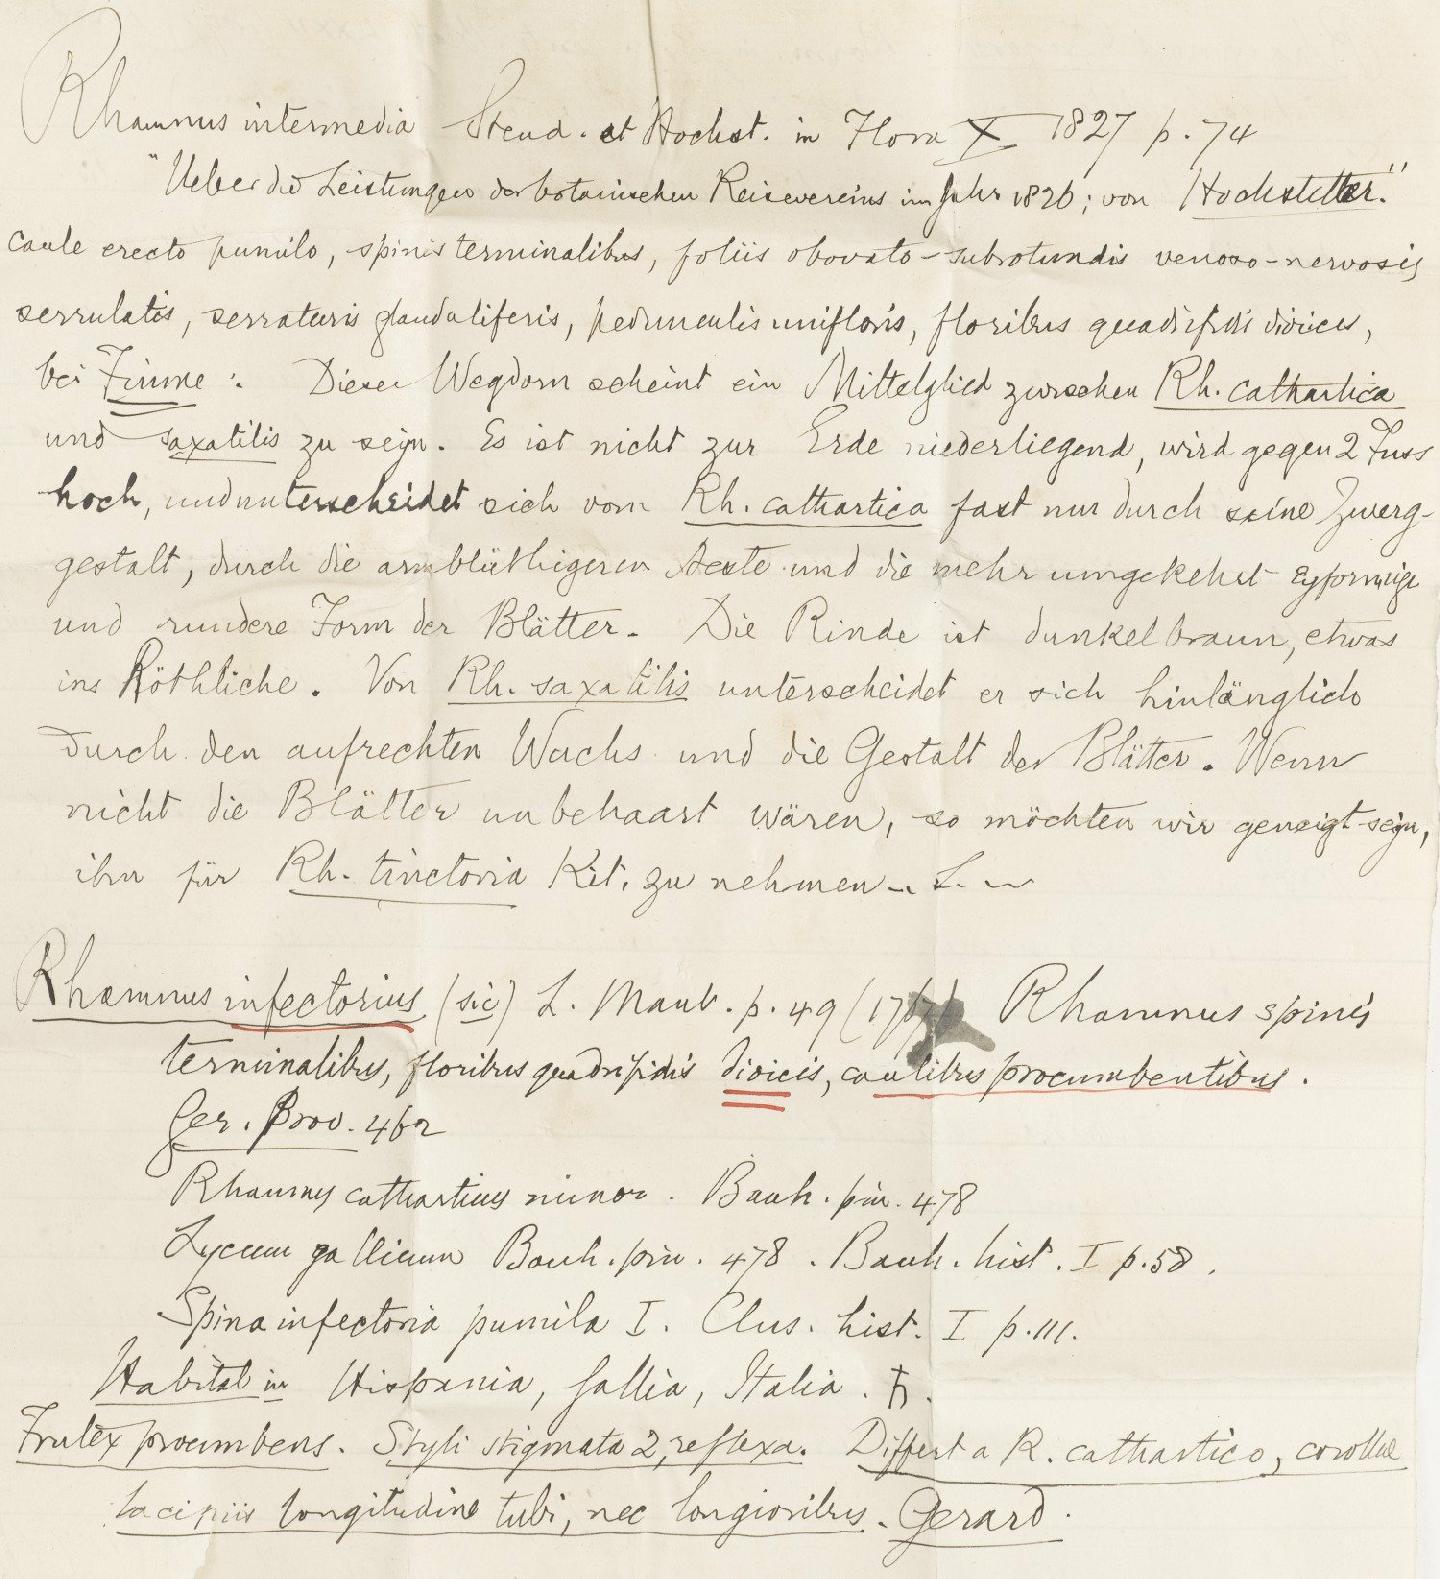 Rhamnus intermedia Steud. et Hochst. in Flora X 1827 p. 74
"Ueber die Leistungen der botanischen Reisevereins im Jahr 1826; von Hochstetter."
caule erecto pumilo, spinis terminalibus, foliis obovato-subrotundis venoso-nervosis
serrulatis, serraturis glanduliferis, pedunculis unifloris, floribus quadrifidis dioicis,
bei Fiume : Dieser Wegdorn scheint ein Mittelglied zwischen Rh. cathartica
und saxatilis zu seyn. Es ist nicht zur Erde niederliegend, wird gegen 2 Fuss
hoch, und unterscheidet sich vom Rh. cathartica fast nur durch seine Zwerg-
gestalt, durch die armblüthigeren Aeste und die mehr umgekehrt eyformige
und rundere Form der Blätter. Die Rinde ist dunkelbraun, etwas
ins Röthliche. Von Rh. saxatilis unterscheidet er sich hinlänglich
durch den aufrechten Wuchs und die Gestalt der Blätter. Wenn
nicht die Blätter unbehaart wären, so möchten wir geneigt seyn,
ihn für Rh. tinctoria Kit. zu nehmen
Rhamnus infectorius (sic) L. Mant. p. 49 (1767) Rhamnus spinis
terminalibus, floribus quadrifidis dioicis, caulibus procumbentibus.
Ger. Prov. 462
Rhamnus catharticus minor. Bauh. pin. 478
Lycium gallicum Bauh. pin. 478. Bauh. hist. I p. 58.
Spina infectoria pumila I. Clus. hist. I p. 111.
Habitat in Hispania, Gallia, Italia. ♄.
Frutex procumbens. Styli stigmata 2, reflexa. Differt a R. cathartico, corollae
laciniis longitudine tubi, nec longioribus. Gerard.